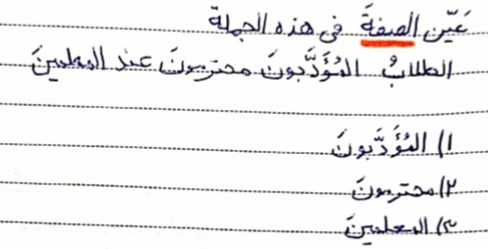 عَيّن الصفةَ في هذه الجملة
الطلابُ المُؤَدَّبونَ محترمونَ عند المعلمينَ
١) المُؤَدَّبونَ
٢) محترمونَ
٣) المعلمينَ